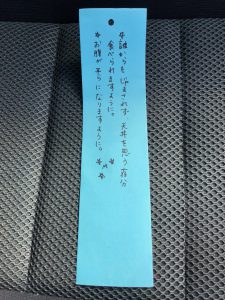 *誰からもじゃまされず、天丼を思う存分
食べられますように。
*お腹が平らになりますように。
*M*